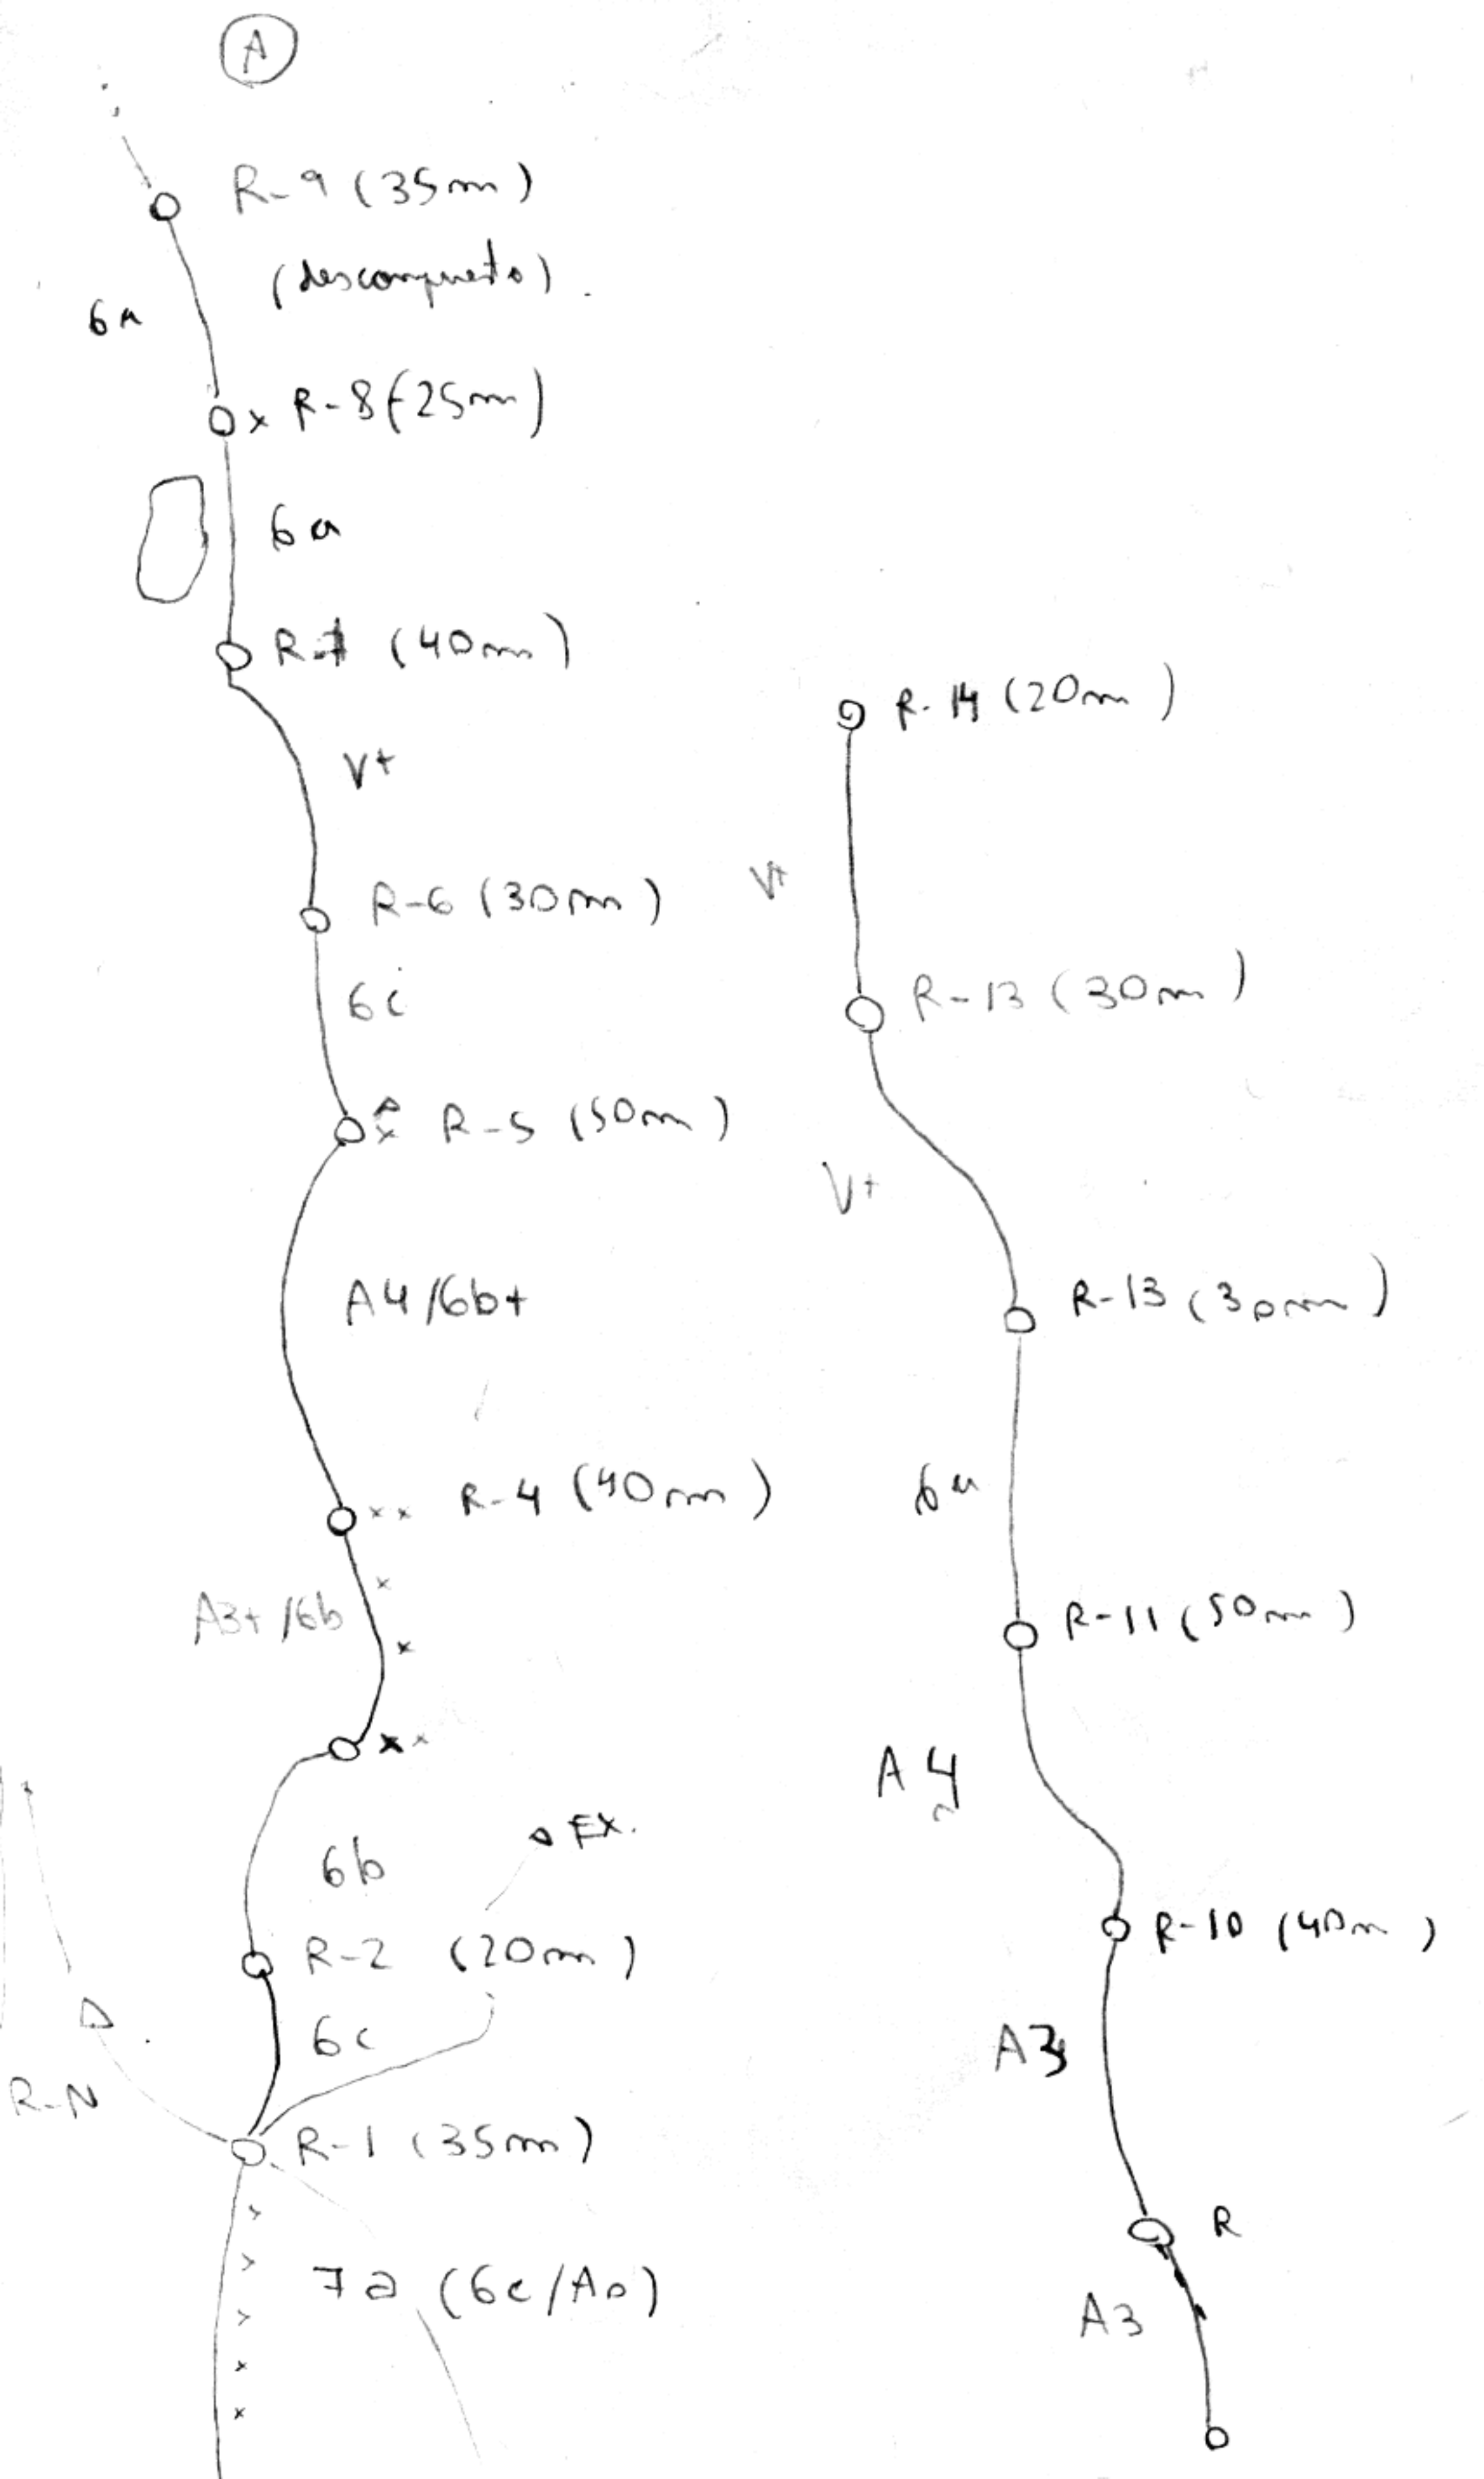 A
R-9 (35m)
(descompuesto).
6a
x R-8 (25m)
6a
R-7 (40m)
V+
R-6 (30m)
6c
x R-5 (50m)
A4/6b+
xx R-4 (40m)
x
A3+/6b
x
xx
EX.
6b
R-2 (20m)
6c
R-N
R-1 (35m)
x
x
7a (6c/Ao)
x
x
x
R-14 (20m)
V+
R-13 (30m)
V+
R-13 (30m)
6a
R-11 (50m)
A4
R-10 (40m)
A3
R
A3